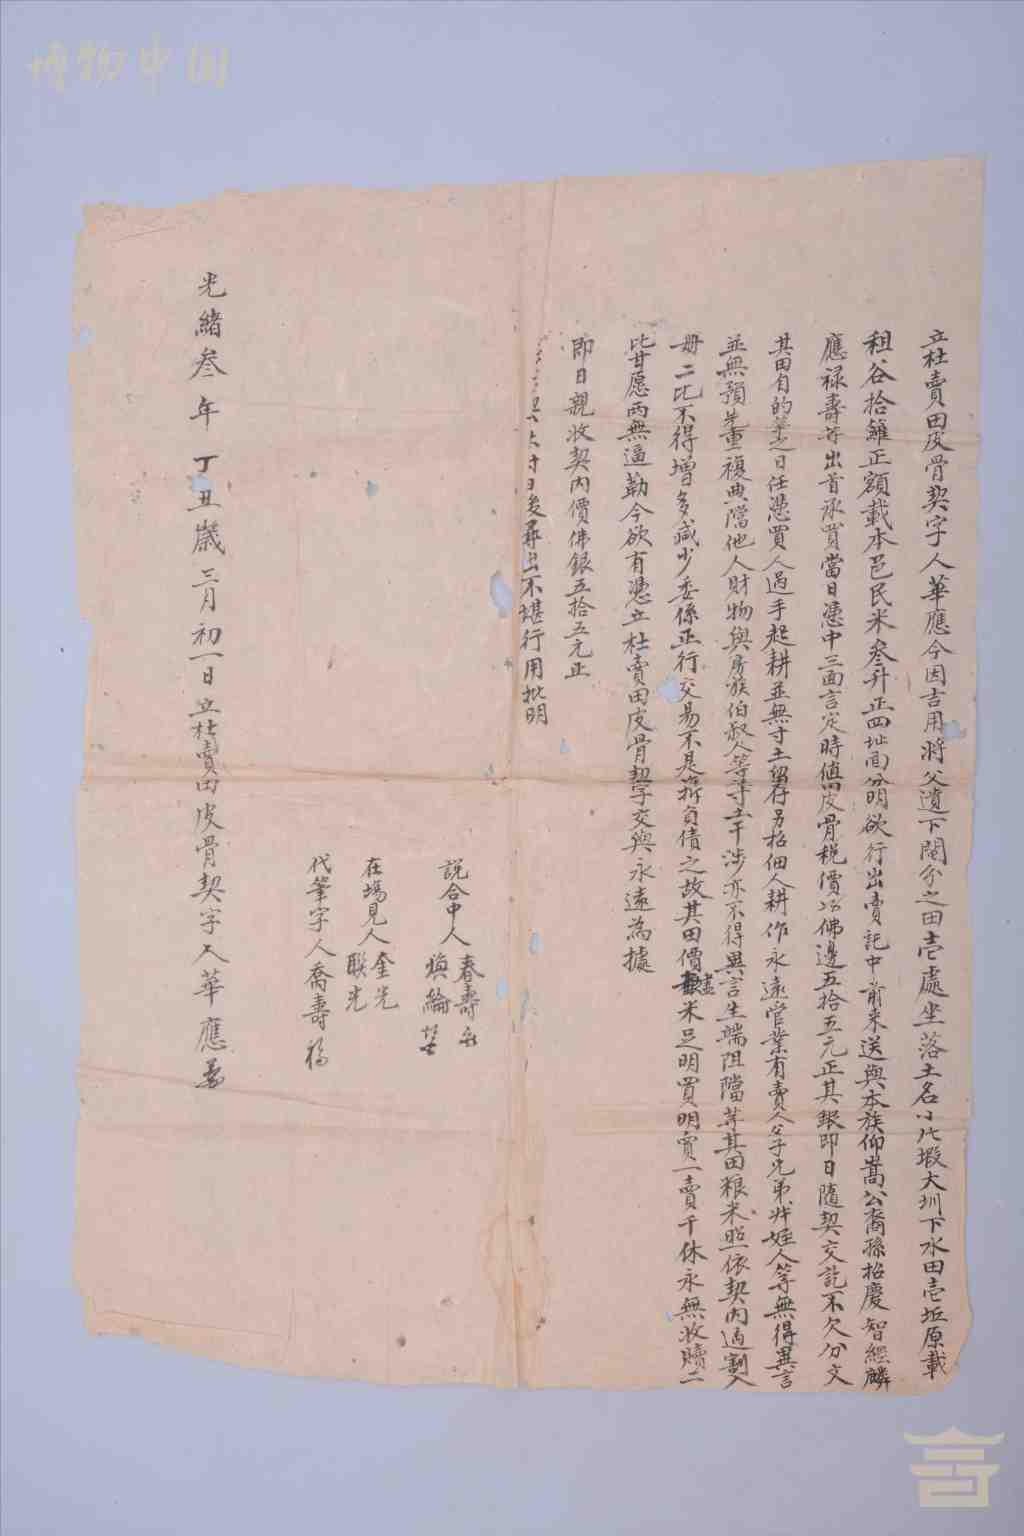 博物中国
立杜賣田皮骨契字人華應今因吉用將父遺下鬮分之田壹處坐落土名小片塅大圳下水田壹坵原載
租谷拾籮正額載本邑民米叁升正四址面分明欲行出賣託中前來送與本族仰嵩公裔孫招慶智經麟
應祿壽等出首承買當日憑中三面言定時值田皮骨稅價佛邊五拾五元正其銀即日隨契交訖不欠分文
其田自的筆之日任憑買人過手起耕並無寸土留存另招佃人耕作永遠管業有賣人父子兄弟姪人等無得異言
並無預先重複典當他人財物與房族伯叔人等寸土干涉亦不得異言生端阻擋等其田粮米照依契內過割入
冊二比不得增多減少委係正行交易不是准折負債之故其田價米足明買明賣一賣千休永無收贖二
比甘愿兩無逼勒今欲有憑立杜賣田皮骨契字交與永遠為據
即日親收契內價佛銀五拾五元正
契大付日後尋出不堪行用批明
說合中人 春壽 煥綸
在場見人 金光 聯光
代筆字人喬壽
光緒叁年丁丑歲三月初一日立杜賣田皮骨契字人華應